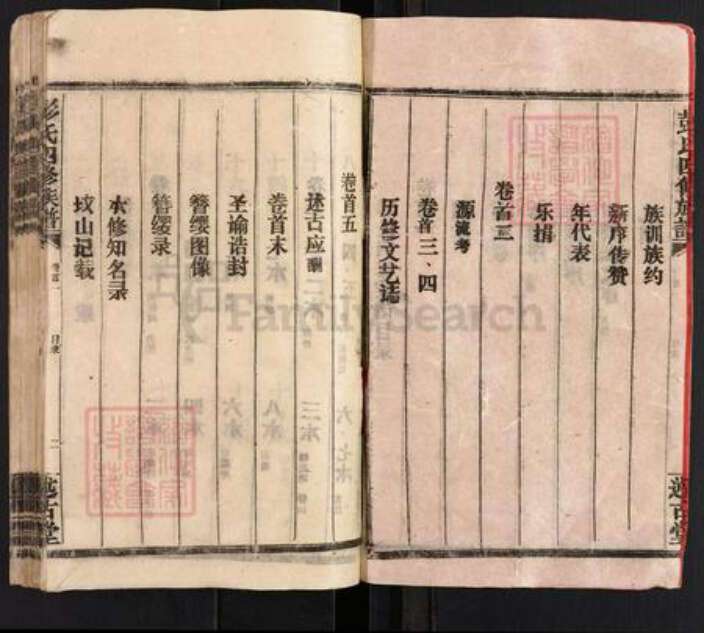 族训族约
新序传赞
年代表
乐捐
卷首二
源流考
卷首三、四
历修文艺志
述古堂
卷首五
述古应酬
卷首末
圣谕诰封
簪缨图像
簪缨录
本修知名录
坟山记载
彭氏四修族谱
卷首一
目录
二
述古堂
FamilySearch